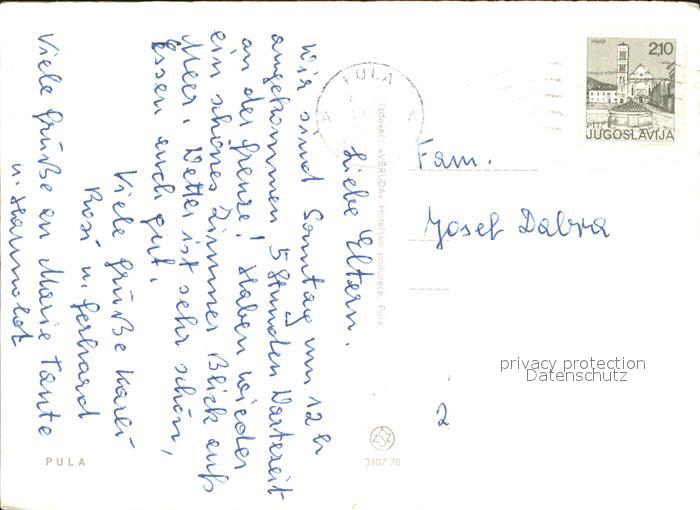 Liebe Eltern.
Wir sind Sonntag um 12 h
angekommen 5 Stunden Wartezeit
an der Grenze! Haben wieder
ein schönes Zimmer Blick aufs
Meer. Wetter ist sehr schön,
Essen auch gut.
Viele Grüße Karli
Rosi u. Gerhard
Viele Grüße an Marie Tante
u.
PULA
Izdavač: »VERUDA« Hotelsko poduzeće, Pula
3107/78
PULA
A A
HVAR
2,10
PTT
JUGOSLAVIJA
Fam.
Josef Dabra
2
privacy protection
Datenschutz